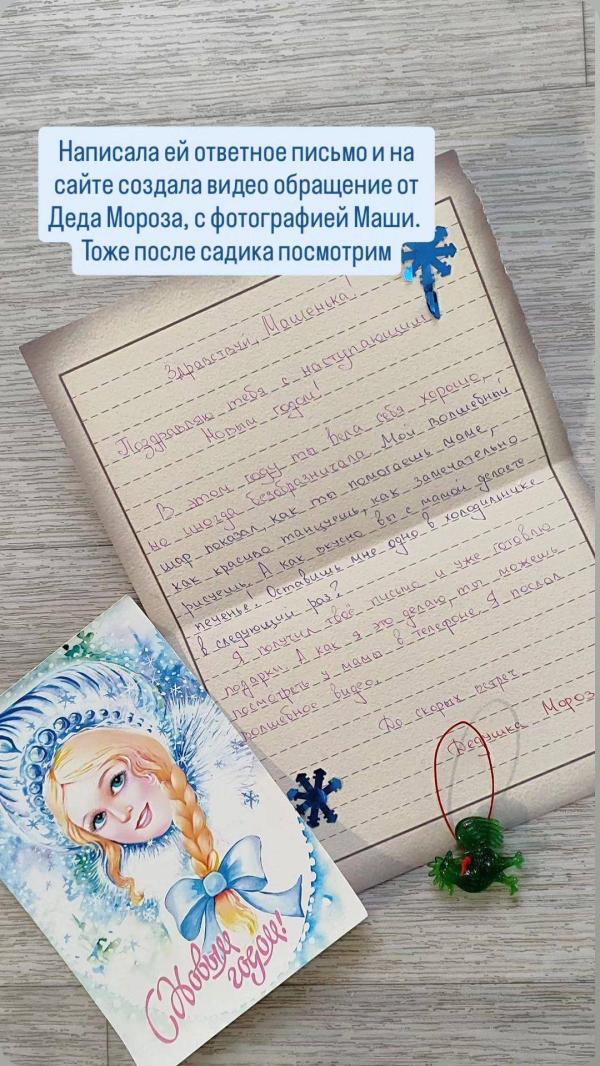 Написала ей ответное письмо и на
сайте создала видео обращение от
Деда Мороза, с фотографией Маши.
Тоже после садика посмотрим
Здравствуй, Машенька!
Поздравляю тебя с наступающим
Новым годом!
В этом году ты вела себя хорошо,
но иногда безобразничала. Мой волшебный
шар показал, как ты помогаешь маме,
как красиво танцуешь, как замечательно
рисуешь. А как вкусно вы с мамой делаете
печенье! Оставишь мне одно в холодильнике
в следующий раз?
Я получил твоё письмо и уже готовлю
подарки. А как я это делаю, ты можешь
посмотреть у мамы в телефоне. Я послал
волшебное видео.
До скорых встреч.
Дедушка Мороз
С Новым
годом!